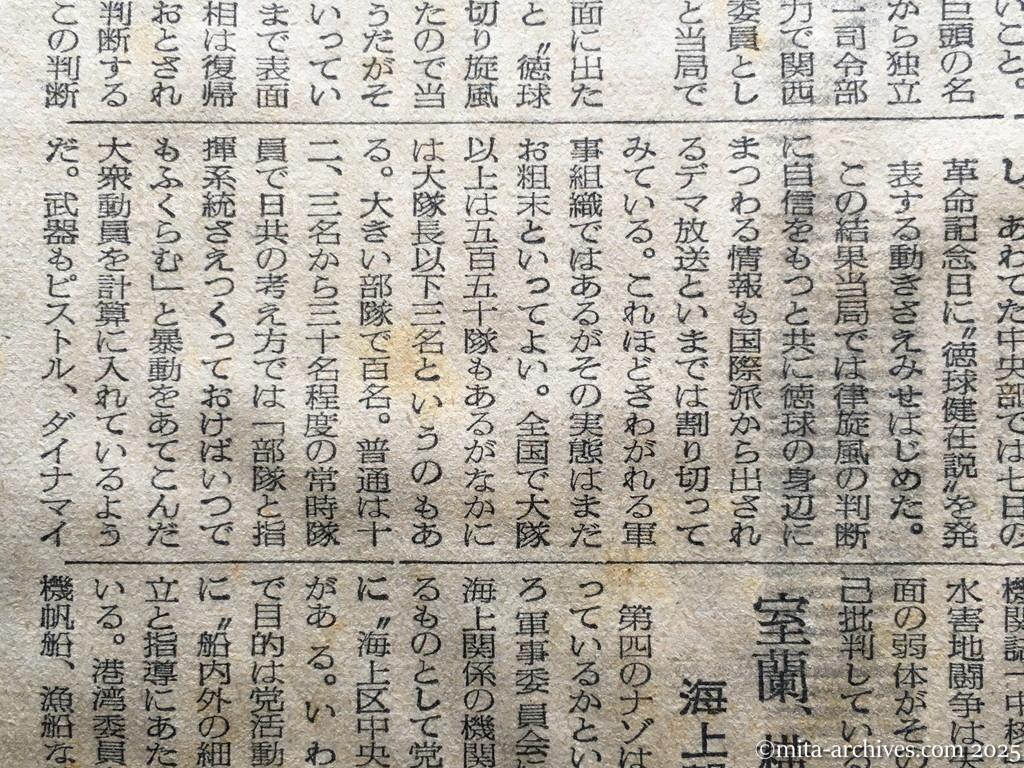 いこと。
巨頭の名
から独立
一司令部
力で関西
委員とし
と当局で
面に出た
と〝徳球
切り旋風
たので当
うだがそ
いってい
まで表面
相は復帰
おとされ
判断する
この判断
し、あわてた中央部では七日の
革命記念日に〝徳球健在説〟を発
表する動きさえみせはじめた。
この結果当局では律旋風の判断
に自信をもつと共に徳球の身辺に
まつわる情報も国際派から出され
るデマ放送といまでは割り切って
みている。これほどさわがれる軍
事組織ではあるがその実態はまだ
お粗末といってよい。全国で大隊
以上は五百五十隊もあるがなかに
は大隊長以下三名というのもあ
る。大きい部隊で百名。普通は十
二、三名から三十名程度の常時隊
員で日共の考え方では「部隊と指
揮系統さえつくっておけばいつで
もふくらむ」と暴動をあてこんだ
大衆動員を計算に入れているよう
だ。武器もピストル、ダイナマイ
機関誌
水害地闘争は
面の弱体がそ
己批判してい
室蘭、
海上
第四のナゾは
っているかとい
ろ軍事委員会
海上関係の機関
るものとして党
に〝海上区中央
がある。いわ
で目的は党活動
に〝船内外の細
立と指導にあた
いる。港湾委員
機帆船、漁船な
©mita-archives.com 2025